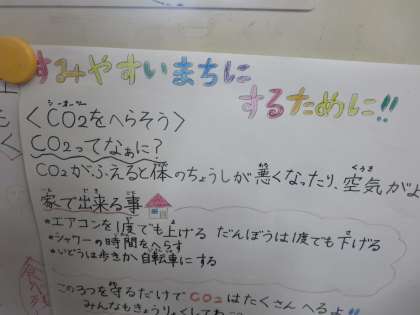 すみやすいまちに
するために!!
<CO2をへらそう>
CO2ってなぁに?
CO2がふえると体のちょうしが悪くなったり、空気がよ
家で出来る事
*エアコンを1度でも上げる だんぼうは1度でも下げる
*シャワーの時間をへらす
*いどうは歩きか自転車にする
この3つを守るだけでCO2はたくさんへるよ!!
みんなもきょうりょくしてね